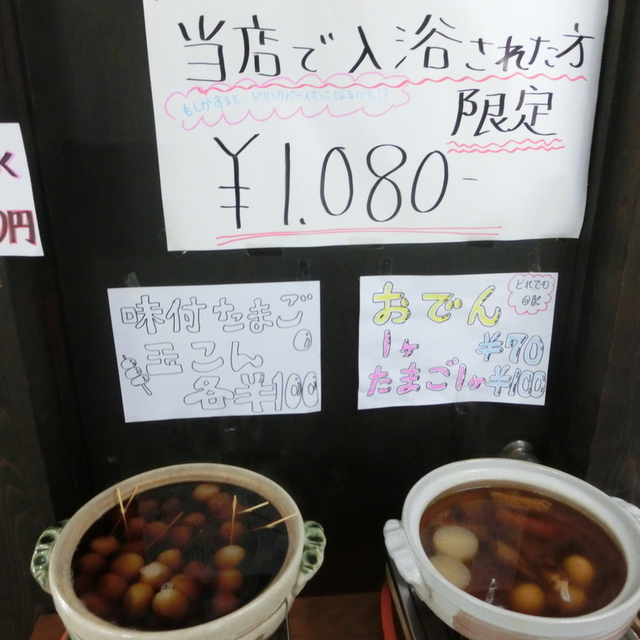 当店で入浴された方
もしかすると、ドリンクバー付になるかも!?
限定
¥1,080-
く
0円
味付たまご
玉こん
各¥100
おでん
どれでも
1ヶ ¥70
たまご1ヶ¥100